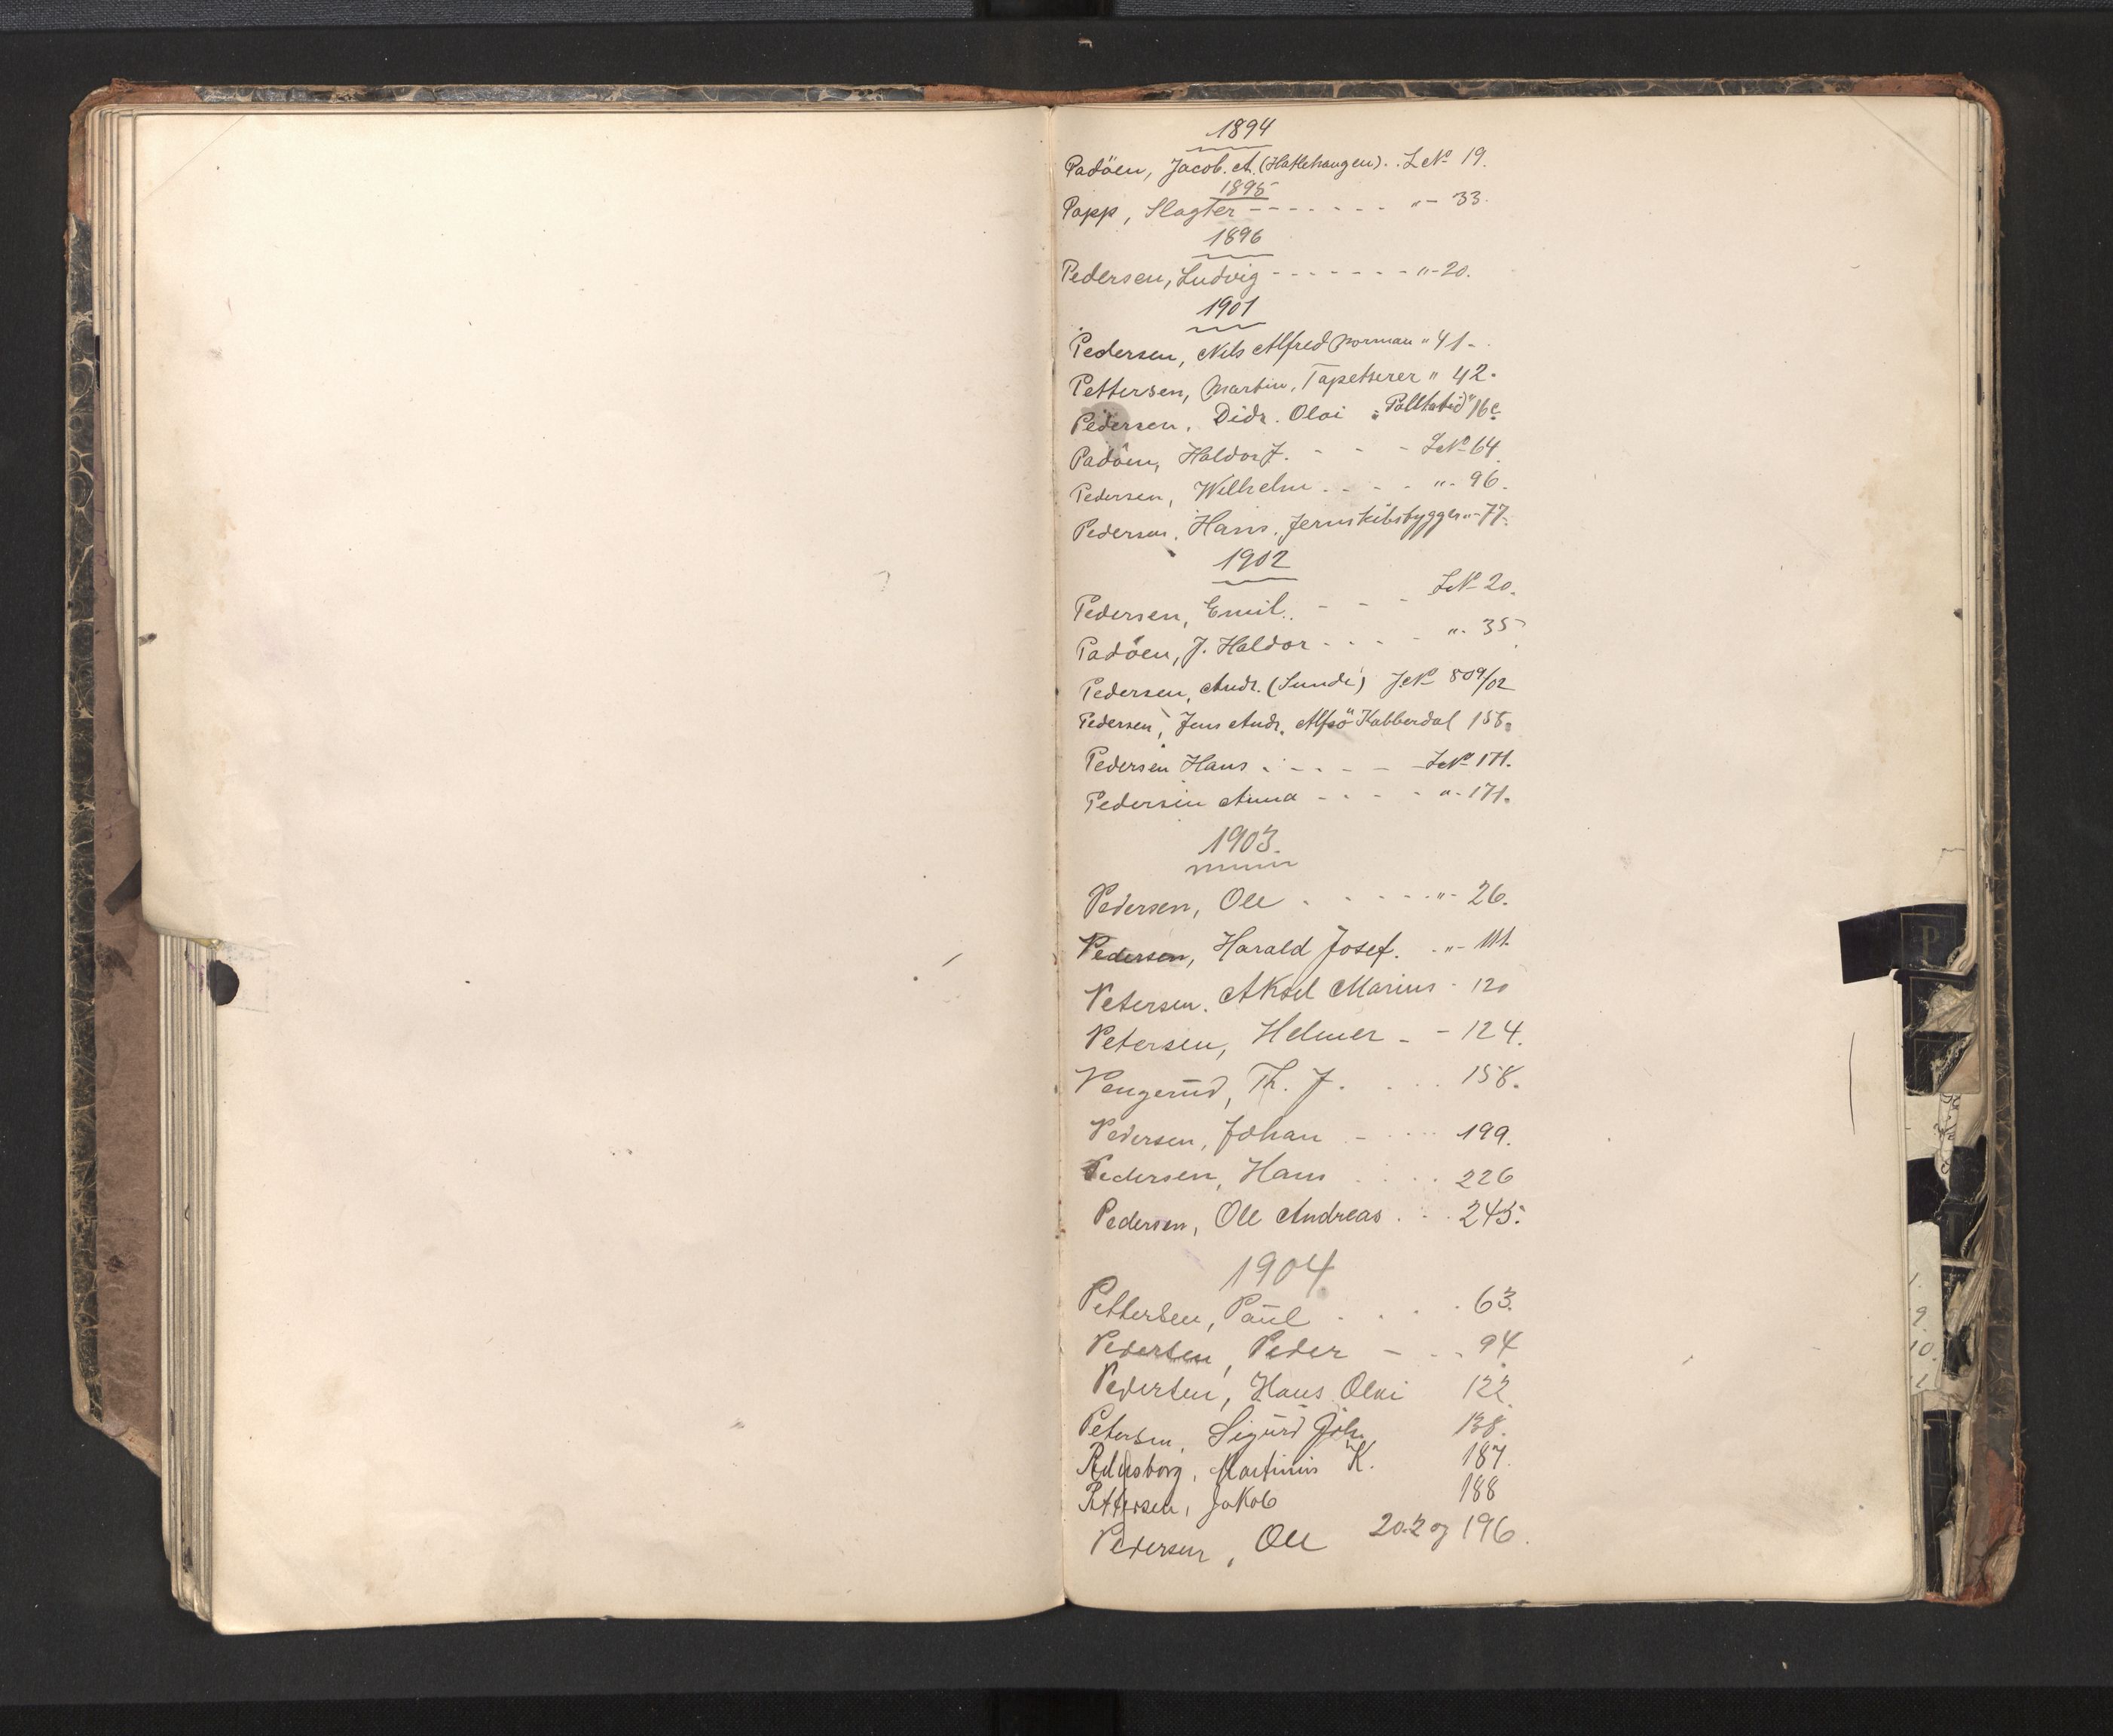 1894
Padöen, Jacob. A. (Hatlehaugen). . L.No 19.
1895
Papp, Slagter - - - - - - - "- 33.
1896
Pedersen, Ludvig - - - - - - - "- 20.
1901
Pedersen, Nils Alfred Norman " 41 -
Pettersen, Martin, Tapetserer " 42.
Pedersen, Didr. Olai 16
Padöen, Haldor J. - - - L.No 64.
Pedersen, Wilhelm . - - - "- 96.
Pedersen, Hans. Jernskibsbygger "- 77.
1902
Pedersen, Emil. - - - L.No 20.
Padöen, J. Haldor - - - - "- 35
Pedersen, Andr. (Sunde) J.No 509/02
Pedersen, Jens Andr. Kabberdal 155.
Pedersen Hans . - - - - L.No 171.
Pedersen Anna - - - - "- 171.
1903.
Pedersen, Ole . - - - - "- 26.
Pedersen, Harald Josef. . "- 111.
Petersen. Aksel Marius - 120
Petersen, Helmer - - 124.
Pengerud, Th. J. . . . 158.
Pedersen, Johan - . . . 199.
Pedersen, Hans . . . . 226
Pedersen, Ole Andreas . . . 245.
1904.
Pettersen, Paul . . . . 63.
Pedersen, Peder - . . 94
Pedersen, Hans Olai 122.
Petersen, Sigurd Joh. 138.
Martinus K. 187.
Pettersen, Jakob 188
Pedersen, Ole 202 og 196.
P